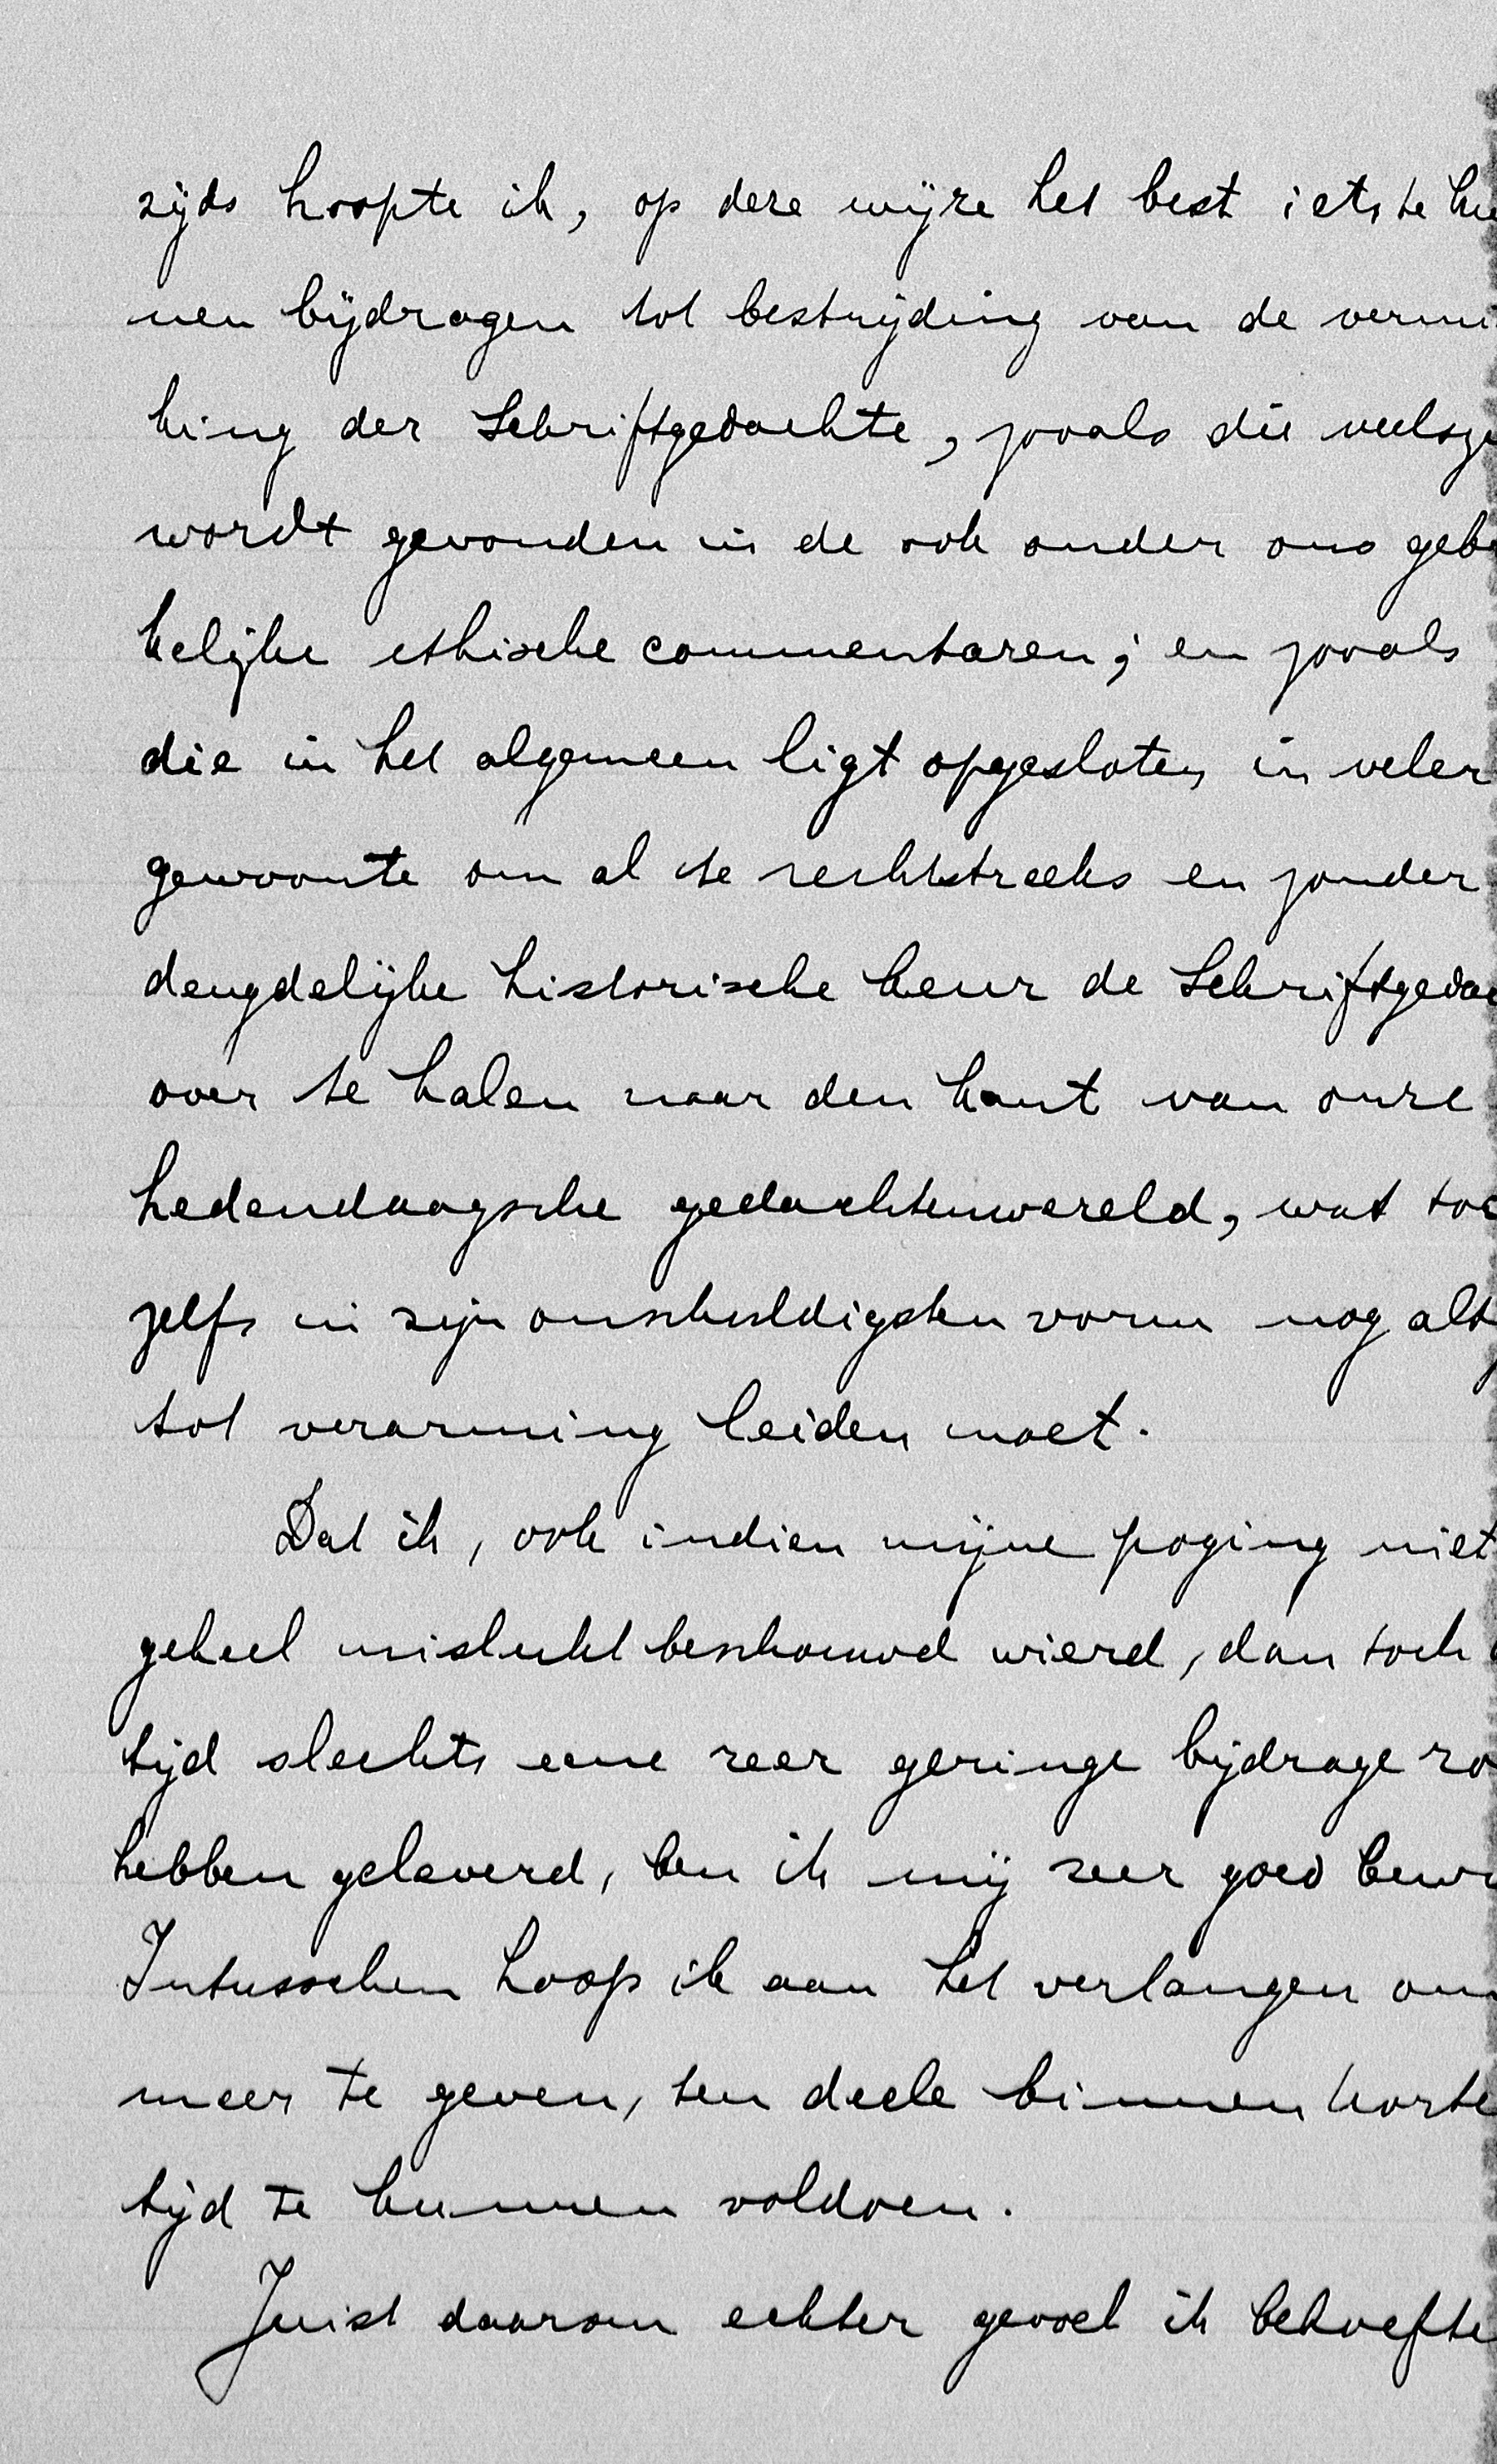 zijds hoopte ik, op deze wijze het best iets te
nen bijdragen tot bestrijding van de
king der Schriftgedachte, zooals die
wordt gevonden in de ook onder ons
kelijke ethische commentaren; en zooals
die in het algemeen ligt opgesloten in veler
gewoonte om al te rechtstreeks en zonder
deugdelijke historische keur de
over te halen naar den kant van onze
hedendaagsche gedachtenwereld, wat
zelfs in zijn onschuldigsten vorm nog
tot verarming leiden moet.
Dat ik, ook indien mijne poging niet
geheel mislukt beschouwd wierd, dan toch
tijd slechts eene zeer geringe bijdrage
hebben geleverd, ben ik mij zeer goed
Intusschen hoop ik aan het verlangen om
meer te geven, ten deele binnen korte
tijd te kunnen voldoen.
Juist daarom echter gevoel ik behoefte